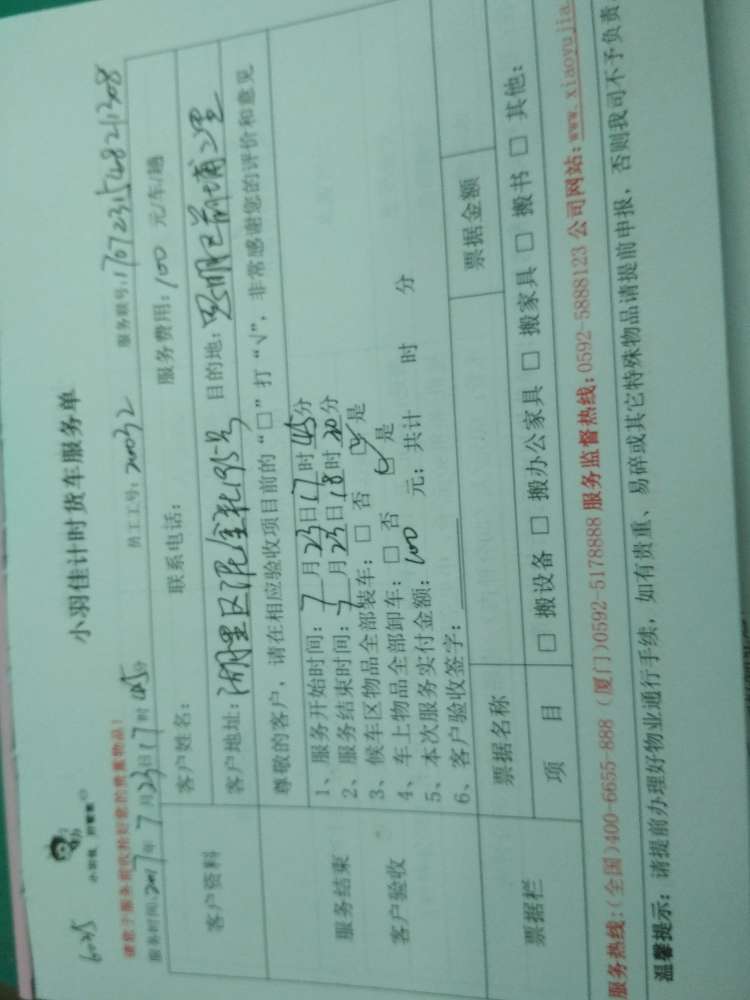 6045
小羽佳计时货车服务单
请您于服务前收拾好您的贵重物品!
服务时间:2017年7月23日17时45分 员工工号:20032 服务联号:170723154821308
客户资料
客户姓名: 联系电话: 服务费用:100 元/车/趟
客户地址:湖里区泥金社195号 目的地:思明区前埔二里
服务结束
客户验收
尊敬的客户,请在相应验收项目前的“□”打“√”,非常感谢您的评价和意见
1、服务开始时间:7月23日17时45分
2、服务结束时间:7月23日18时30分
3、候车区物品全部装车:□ 否 ☑ 是
4、车上物品全部卸车:□ 否 ☑ 是
5、本次服务实付金额:100 元;共计 时 分
6、客户验收签字:
票据栏
票据名称 票据金额
项 目 □ 搬设备 □ 搬办公家具 □ 搬家具 □ 搬书 □ 其他:
服务热线:(全国)400-6655-888 (厦门)0592-5178888 服务监督热线:0592-5888123 公司网站:www.xiaoyujia
温馨提示:请提前办理好物业通行手续,如有贵重、易碎或其它特殊物品请提前申报,否则我司不予负责